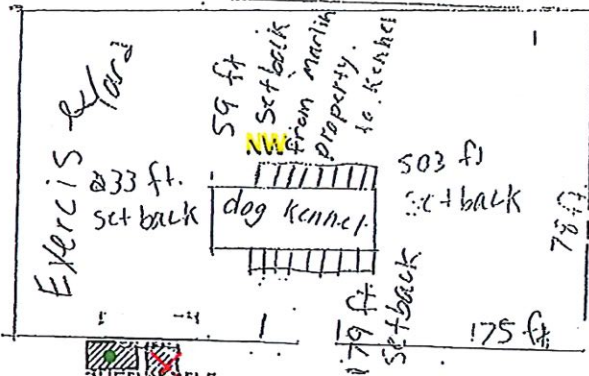 Exercis Yard
59 ft
setback
from marlin
property.
to. Kennel
NW
233 ft.
setback
dog kennel.
503 ft
setback
78 ft.
179 ft
setback
175 ft.